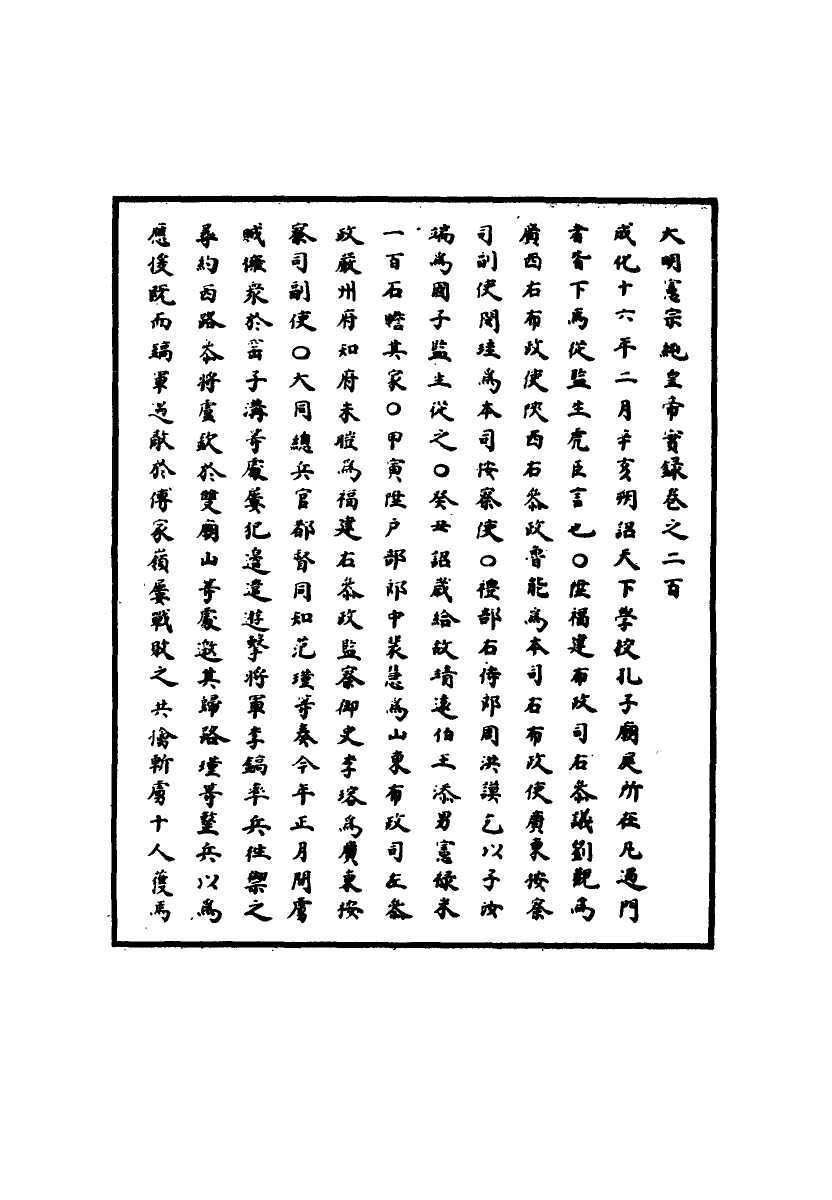 大明憲宗純皇帝實錄卷之二百
成化十六年二月辛亥朔詔天下學校孔子廟廷所在凡過門
者皆下馬從監生虎臣言也○陞福建布政司右叅議劉觀為
廣西右布政使陝西右叅政魯能為本司右布政使廣東按察
司副使閔珪為本司按察使○禮部右侍郎周洪謨乞以子汝
瑞為國子監生從之○癸丑詔歲給故靖遠伯王添男憲祿米
一百石贍其家○甲寅陞戶部郎中裴慧為山東布政司左叅
政嚴州府知府朱暟為福建右叅政監察御史李瑢為廣東按
察司副使○大同總兵官都督同知范瑾等奏今年正月間虜
賊擁衆於窑子溝等處屢犯邊遣遊擊將軍李鎬率兵徃禦之
尋約西路叅將盧欽於雙廟山等處邀其歸路瑾等整兵以為
應後既而鎬軍遇敵於傅家嶺屢戰敗之共擒斬虜十人獲馬